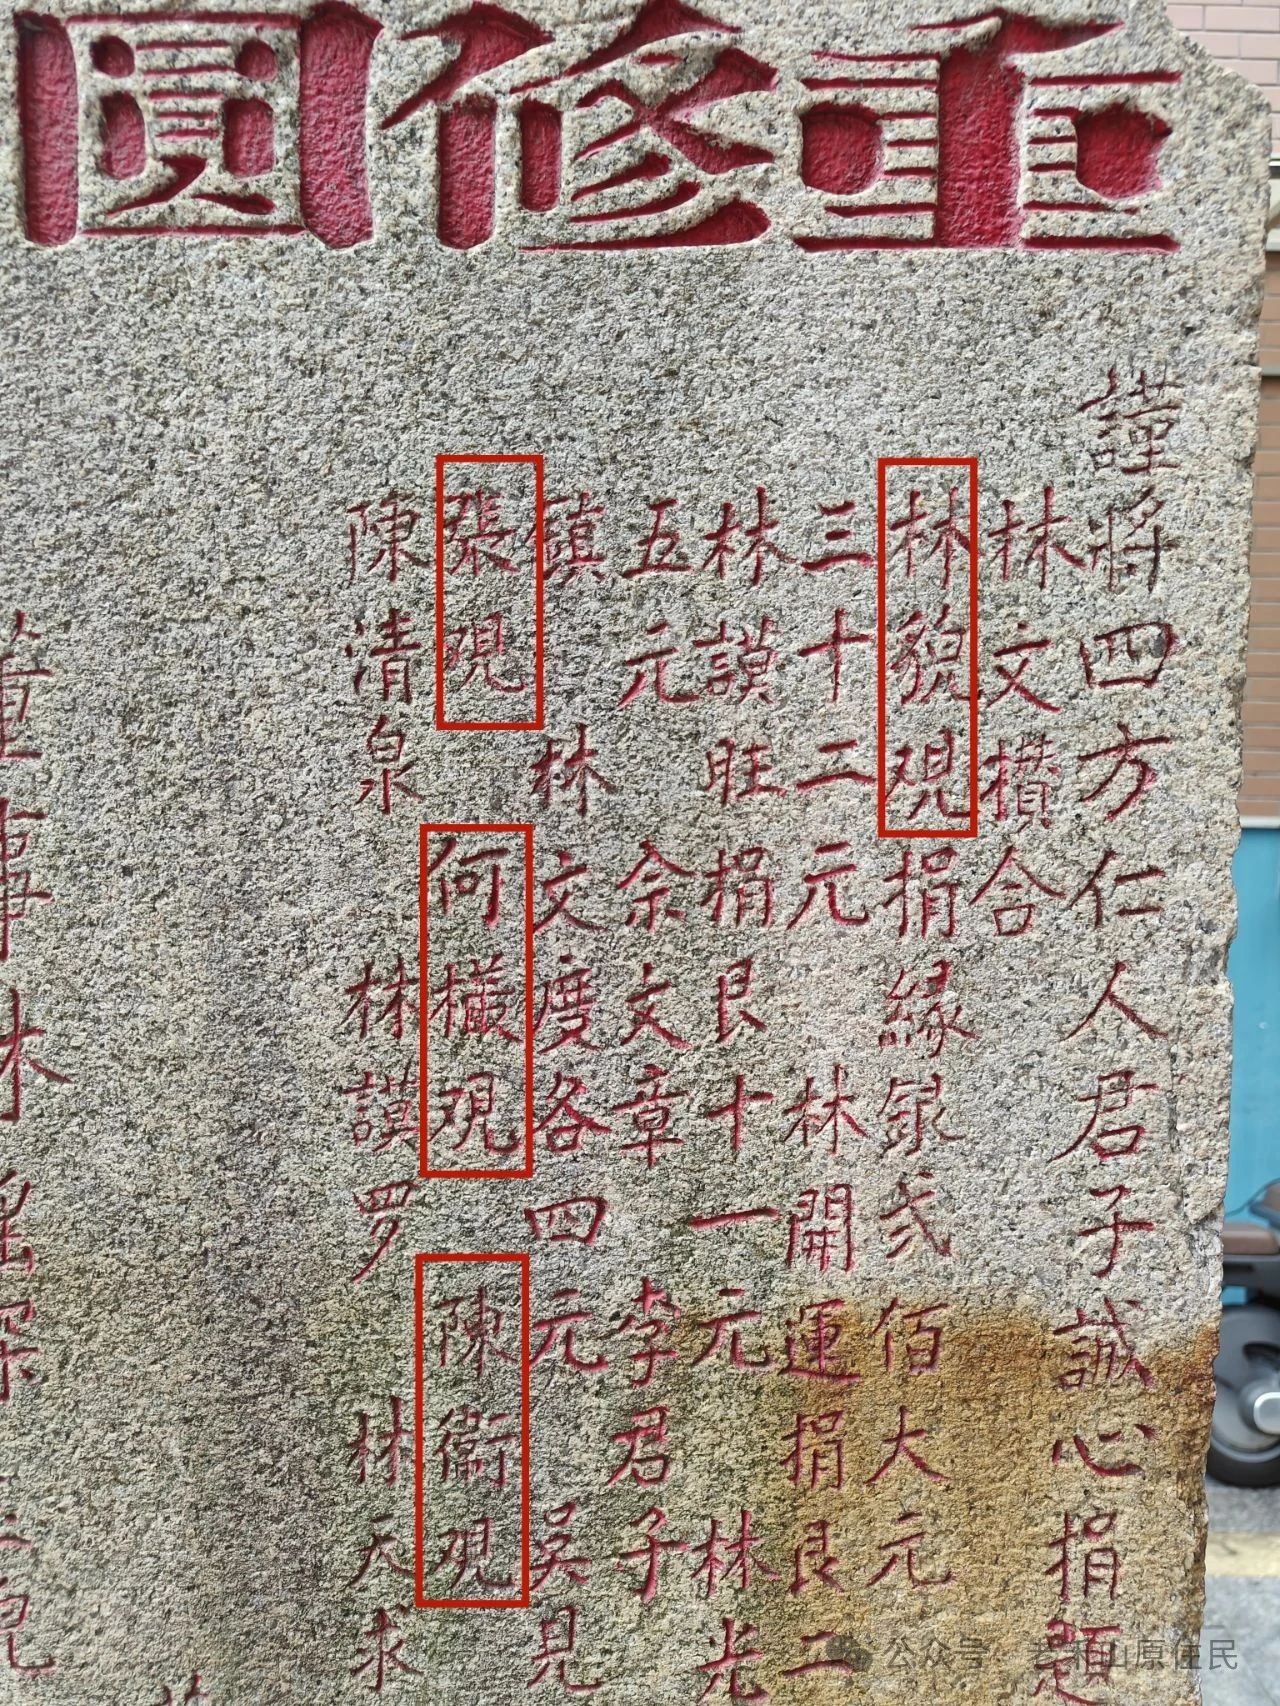 重修圓
謹將四方仁人君子誠心捐題
林文攢合
林貌覌捐緣銀弍佰大元
三十二元 林開運捐艮二
林謨旺捐艮十一元 林光
五元 余文章 李君子
鎮 林文度各四元 吳見
張覌 何檥覌 陳衞覌
陳清泉 林謨罗 林天求
董事林
公众号 老和山原住民